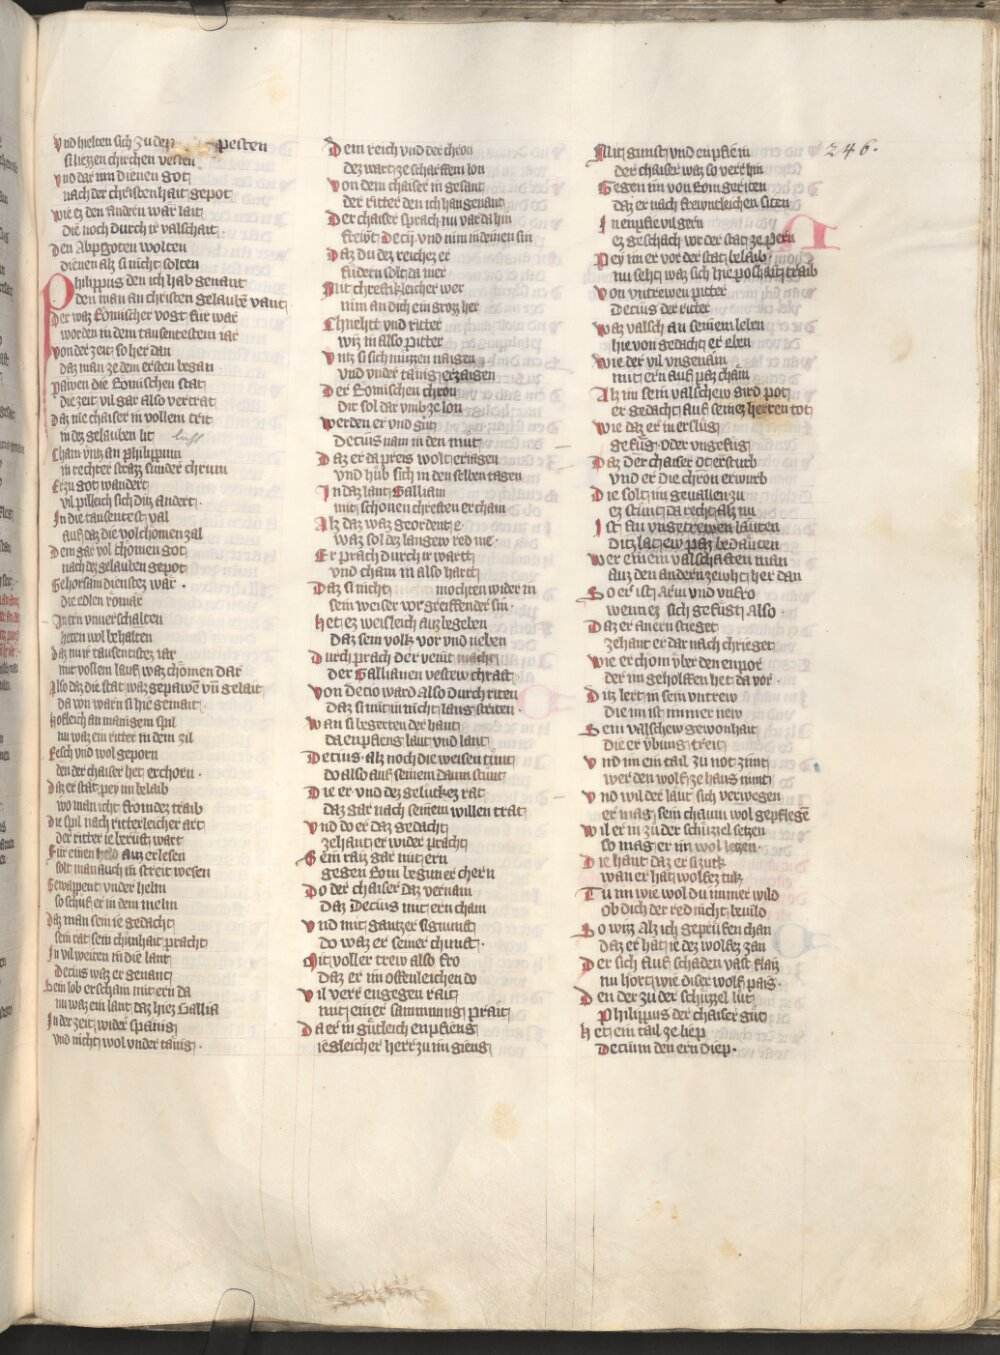 246.
Vnd hielten sich zu den pesten
si liezzen chirchen vesten
Vnd dar inn dienen got
nach der christenhait gepot
Wie ez den andern wär lait
die noch durch ir valschait
Den Abpgoten wolten
dienen als si nicht solten
Philippus den ich hab genant
den man an christen gelauben vant
Der waz Römischer vogt für war
worden in dem tausentestem iar
Von der zeit so her dan
daz man ze dem ersten began
Pawen die Römischen stat
die zeit vil gar also vertrat
Daz nie chaiser in vollem trit
in dez gelauben lit
Cham vntz an Philippum
in rechter strazz sunder chrum
Er zu got wandert
vil pilleich sich ditz andert
In die tausentest val
auf daz die volchomen zal
Dem gar vol chomen got
nach dez gelauben gepot
Gehorsam dienstez wär
die edlen römär
heten wol behalten
Daz nu ir tausentistez iar
mit vollem lauf waz chomen dar
Also daz die stat waz gepawen vnd gelait
da von warn si hie gemait
Hofleich an manigem spil
nu waz ein ritter in dem zil
Resch vnd wol geporn
den der chaiser het erchorn
Daz er stät pey im belaib
wo man icht fromdez traib
Die spil nach ritterleicher art
der ritter ie berust wart
Für einen held auz erlesen
solt man auch in streit wesen
Gewappent vnder helm
so schuf er in dem melm
Daz man sein ie gedacht
sein rat sein chünhait pracht
In vil weiten in die lant
Decius waz er genant
Sein lob erscham mit ern da
nu waz ein lant daz hiez Gallia
In der zeit wider spänig
vnd nicht wol vnder tänig
Dem reich vnd der chron
dez wart ze scharffem lon
Von dem chaiser in gesant
der ritter den ich han genant
Der chaiser sprach nu var da hin
frewnt Decij vnd nim in deinen sin
Daz du dez reichez er
fudern solt da mer
Mit chrestikleicher wer
nim an dich ein grozz her
Chnecht vnd ritter
wiz in also pitter
Vntz si sich müzzen naigen
vnd vnder tänig erzaigen
Der Römischen chron
dir sol dar vmb ze lon
Werden er vnd gut
Decius nam in den mut
Daz er da preis wolt eriagen
vnd hub sich in den selben tagen
In daz lant Galliam
mit schonen chresten er cham
Alz daz waz geordent e
waz sol dez langew red me
Er prach durch ir wart
vnd cham in also hart
Daz si nicht mochten wider in
sein weiser vor greiffender sin
Het ez weisleich auz begeben
daz sein volk vor vnd neben
Durch prach der veint macht
der Gallianen vestew chraft
Von Decio ward also durch riten
daz si mit in nicht lang striten
Wan si begerten der hant
da enpfieng laut vnd lant
Decius alz noch die weisen tunt
do also auf seinem dann stunt
Die er vnd dez gelückez rat
daz gar nach seinem willen trat
Vnd do er daz gedacht
zehant er wider pracht
Sein raiz gar mit ern
gegen Rom begund er chern
Do der chaiser daz vernam
daz Decius mit ern cham
Vnd mit gantzer signunst
do waz er seiner chunst
Mit voller trew also fro
daz er im offenleichen do
Vil verr engegen rait
mit einer sammung prait
Da er in gütleich enpfieng
iegleicher herr zu im gieng
Mit gunst vnd enpfie in
der chaiser waz so verr hin
Gegen im von Rom geriten
daz er nach frewntleichen siten
In enpfie vil gern
ez geschach vor der stat ze Pern
Pey im er vor der stat belaib
nu seht waz sich hie poshait traib
Von vntrewen pitter
Decius der ritter
Waz valsch an seinem leben
hie von gedacht er eben
Wie der vil vngenäm
mit ern auf paz chäm
Alz im sein valschew gird pot
er gedacht auf seinez herren tot
Wie daz er in erslüg
gefüg oder vngefüg
Daz der chaiser ot ersturb
vnd er die chron erwurb
Die solt im gevallen zu
ez stünt da recht alz nu
Ist an vngetrewen läuten
ditz latz ew paz bedäuten
Wer einem valschaften man
auz den andern zeucht her dan
So er ist arm vnd vnfro
wenn ez sich gefügt also
Daz er an ern stieget
zehant er dar nach chrieget
Wie er chom über den enpor
der im geholffen het da vor
Ditz lert in sein vntrew
die im ist immer new
Sein valschew gewonhait
die er übung treit
Vnd im ein tail zu not zimt
wer den wolf ze haus nimt
Vnd wil der laut sich verwegen
er mag sein chaum wol gepflegen
Wil er in zu der schüzzel setzen
so mag er in wol letzen
Die haut daz er si zuck
wan er hat wolfez tük
Tu im wie wol du immer wild
ob dich der red nicht bevild
So wiz alz ich geprüfen chan
daz er hat ie dez wolfez zan
Der sich auf schaden vast flaiz
nu hört wie diser wolf paiz
Den der zu der schüzzel lüt
Philippus der chaiser güt
Het ein tail ze liep
Decium den ern diep